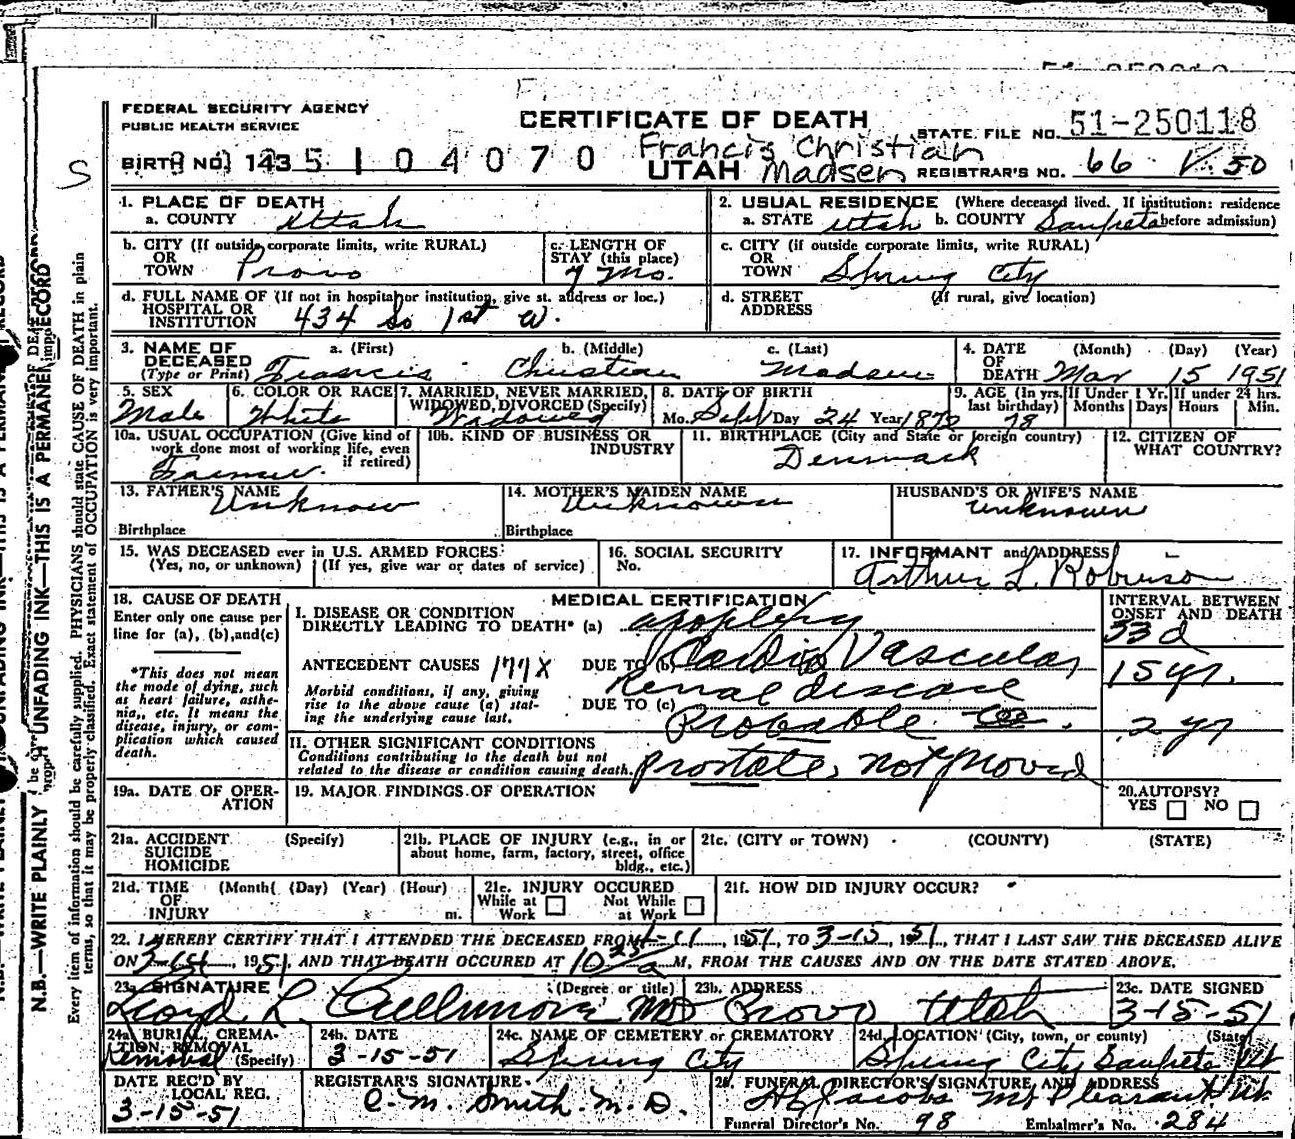 FEDERAL SECURITY AGENCY
PUBLIC HEALTH SERVICE
CERTIFICATE OF DEATH
STATE FILE NO. 51-250118
BIRTH NO. 143 5104070
Francis Christian
UTAH Madsen
REGISTRAR'S NO. 66 50
S
1. PLACE OF DEATH
a. COUNTY Utah
2. USUAL RESIDENCE (Where deceased lived. If institution: residence
a. STATE Utah b. COUNTY Sanpete before admission)
b. CITY (If outside corporate limits, write RURAL)
OR
TOWN Provo
c. LENGTH OF
STAY (this place)
7 Mo.
c. CITY (if outside corporate limits, write RURAL)
OR
TOWN Spring City
d. FULL NAME OF (If not in hospital or institution, give st. address or loc.)
HOSPITAL OR
INSTITUTION 434 So 1st W.
d. STREET (If rural, give location)
ADDRESS
3. NAME OF a. (First) b. (Middle) c. (Last)
DECEASED
(Type or Print) Francis Christian Madsen
4. DATE (Month) (Day) (Year)
OF
DEATH Mar 15 1951
5. SEX
Male
6. COLOR OR RACE
White
7. MARRIED, NEVER MARRIED,
WIDOWED, DIVORCED (Specify)
Widowed
8. DATE OF BIRTH
Mo. Sept Day 24 Year 1872
9. AGE (In yrs. If Under 1 Yr. If under 24 hrs.
last birthday) Months Days Hours Min.
78
10a. USUAL OCCUPATION (Give kind of
work done most of working life, even
if retired)
Farmer.
10b. KIND OF BUSINESS OR
INDUSTRY
11. BIRTHPLACE (City and State or foreign country)
Denmark
12. CITIZEN OF
WHAT COUNTRY?
13. FATHER'S NAME
Unknow
Birthplace
14. MOTHER'S MAIDEN NAME
Unknown
Birthplace
HUSBAND'S OR WIFE'S NAME
Unknown
15. WAS DECEASED ever in U.S. ARMED FORCES
(Yes, no, or unknown) (If yes, give war or dates of service)
16. SOCIAL SECURITY
No.
17. INFORMANT and ADDRESS
Arthur L. Robinson
18. CAUSE OF DEATH
Enter only one cause per
line for (a), (b), and (c)
*This does not mean
the mode of dying, such
as heart failure, asthe-
nia, etc. It means the
disease, injury, or com-
plication which caused
death.
MEDICAL CERTIFICATION
I. DISEASE OR CONDITION
DIRECTLY LEADING TO DEATH* (a) apoplexy
ANTECEDENT CAUSES 177X DUE TO (b) Cardio Vascular
Renal disease
Morbid conditions, if any, giving
rise to the above cause (a) stat-
ing the underlying cause last.
DUE TO (c)
Probable Ca.
II. OTHER SIGNIFICANT CONDITIONS
Conditions contributing to the death but not
related to the disease or condition causing death.
prostate, not proved
INTERVAL BETWEEN
ONSET AND DEATH
33d
15 yr.
2 yr
19a. DATE OF OPER-
ATION
19. MAJOR FINDINGS OF OPERATION
20. AUTOPSY?
YES NO
21a. ACCIDENT (Specify)
SUICIDE
HOMICIDE
21b. PLACE OF INJURY (e.g., in or
about home, farm, factory, street, office
bldg., etc.)
21c. (CITY or TOWN) (COUNTY) (STATE)
21d. TIME (Month) (Day) (Year) (Hour)
OF
INJURY m.
21e. INJURY OCCURED
While at Not While
Work at Work
21f. HOW DID INJURY OCCUR?
22. I HEREBY CERTIFY THAT I ATTENDED THE DECEASED FROM 1-11, 1951, TO 3-15, 1951, THAT I LAST SAW THE DECEASED ALIVE
ON 3-14, 1951, AND THAT DEATH OCCURED AT 10 25 a M, FROM THE CAUSES AND ON THE DATE STATED ABOVE.
23a SIGNATURE (Degree or title)
Lloyd L. Cullimore MD
23b. ADDRESS
Provo Utah
23c. DATE SIGNED
3-15-51
24a BURIAL, CREMA-
TION, REMOVAL
(Specify)
Removal
24b. DATE
3-15-51
24c. NAME OF CEMETERY or CREMATORY
Spring City
24d. LOCATION (City, town, or county) (State)
Spring City Sanpete Ut
DATE REC'D BY
LOCAL REG.
3-15-51
REGISTRAR'S SIGNATURE
C. M. Smith. M.D.
25. FUNERAL DIRECTOR'S SIGNATURE AND ADDRESS
Jacobs Mt Pleasant Ut.
Funeral Director's No. 98 Embalmer's No. 284
N.B.—WRITE PLAINLY UNFADING INK—THIS IS A PERMANENT RECORD
Every item of information should be carefully supplied. PHYSICIANS should state CAUSE OF DEATH in plain
terms, so that it may be properly classified. Exact statement of OCCUPATION is very important.